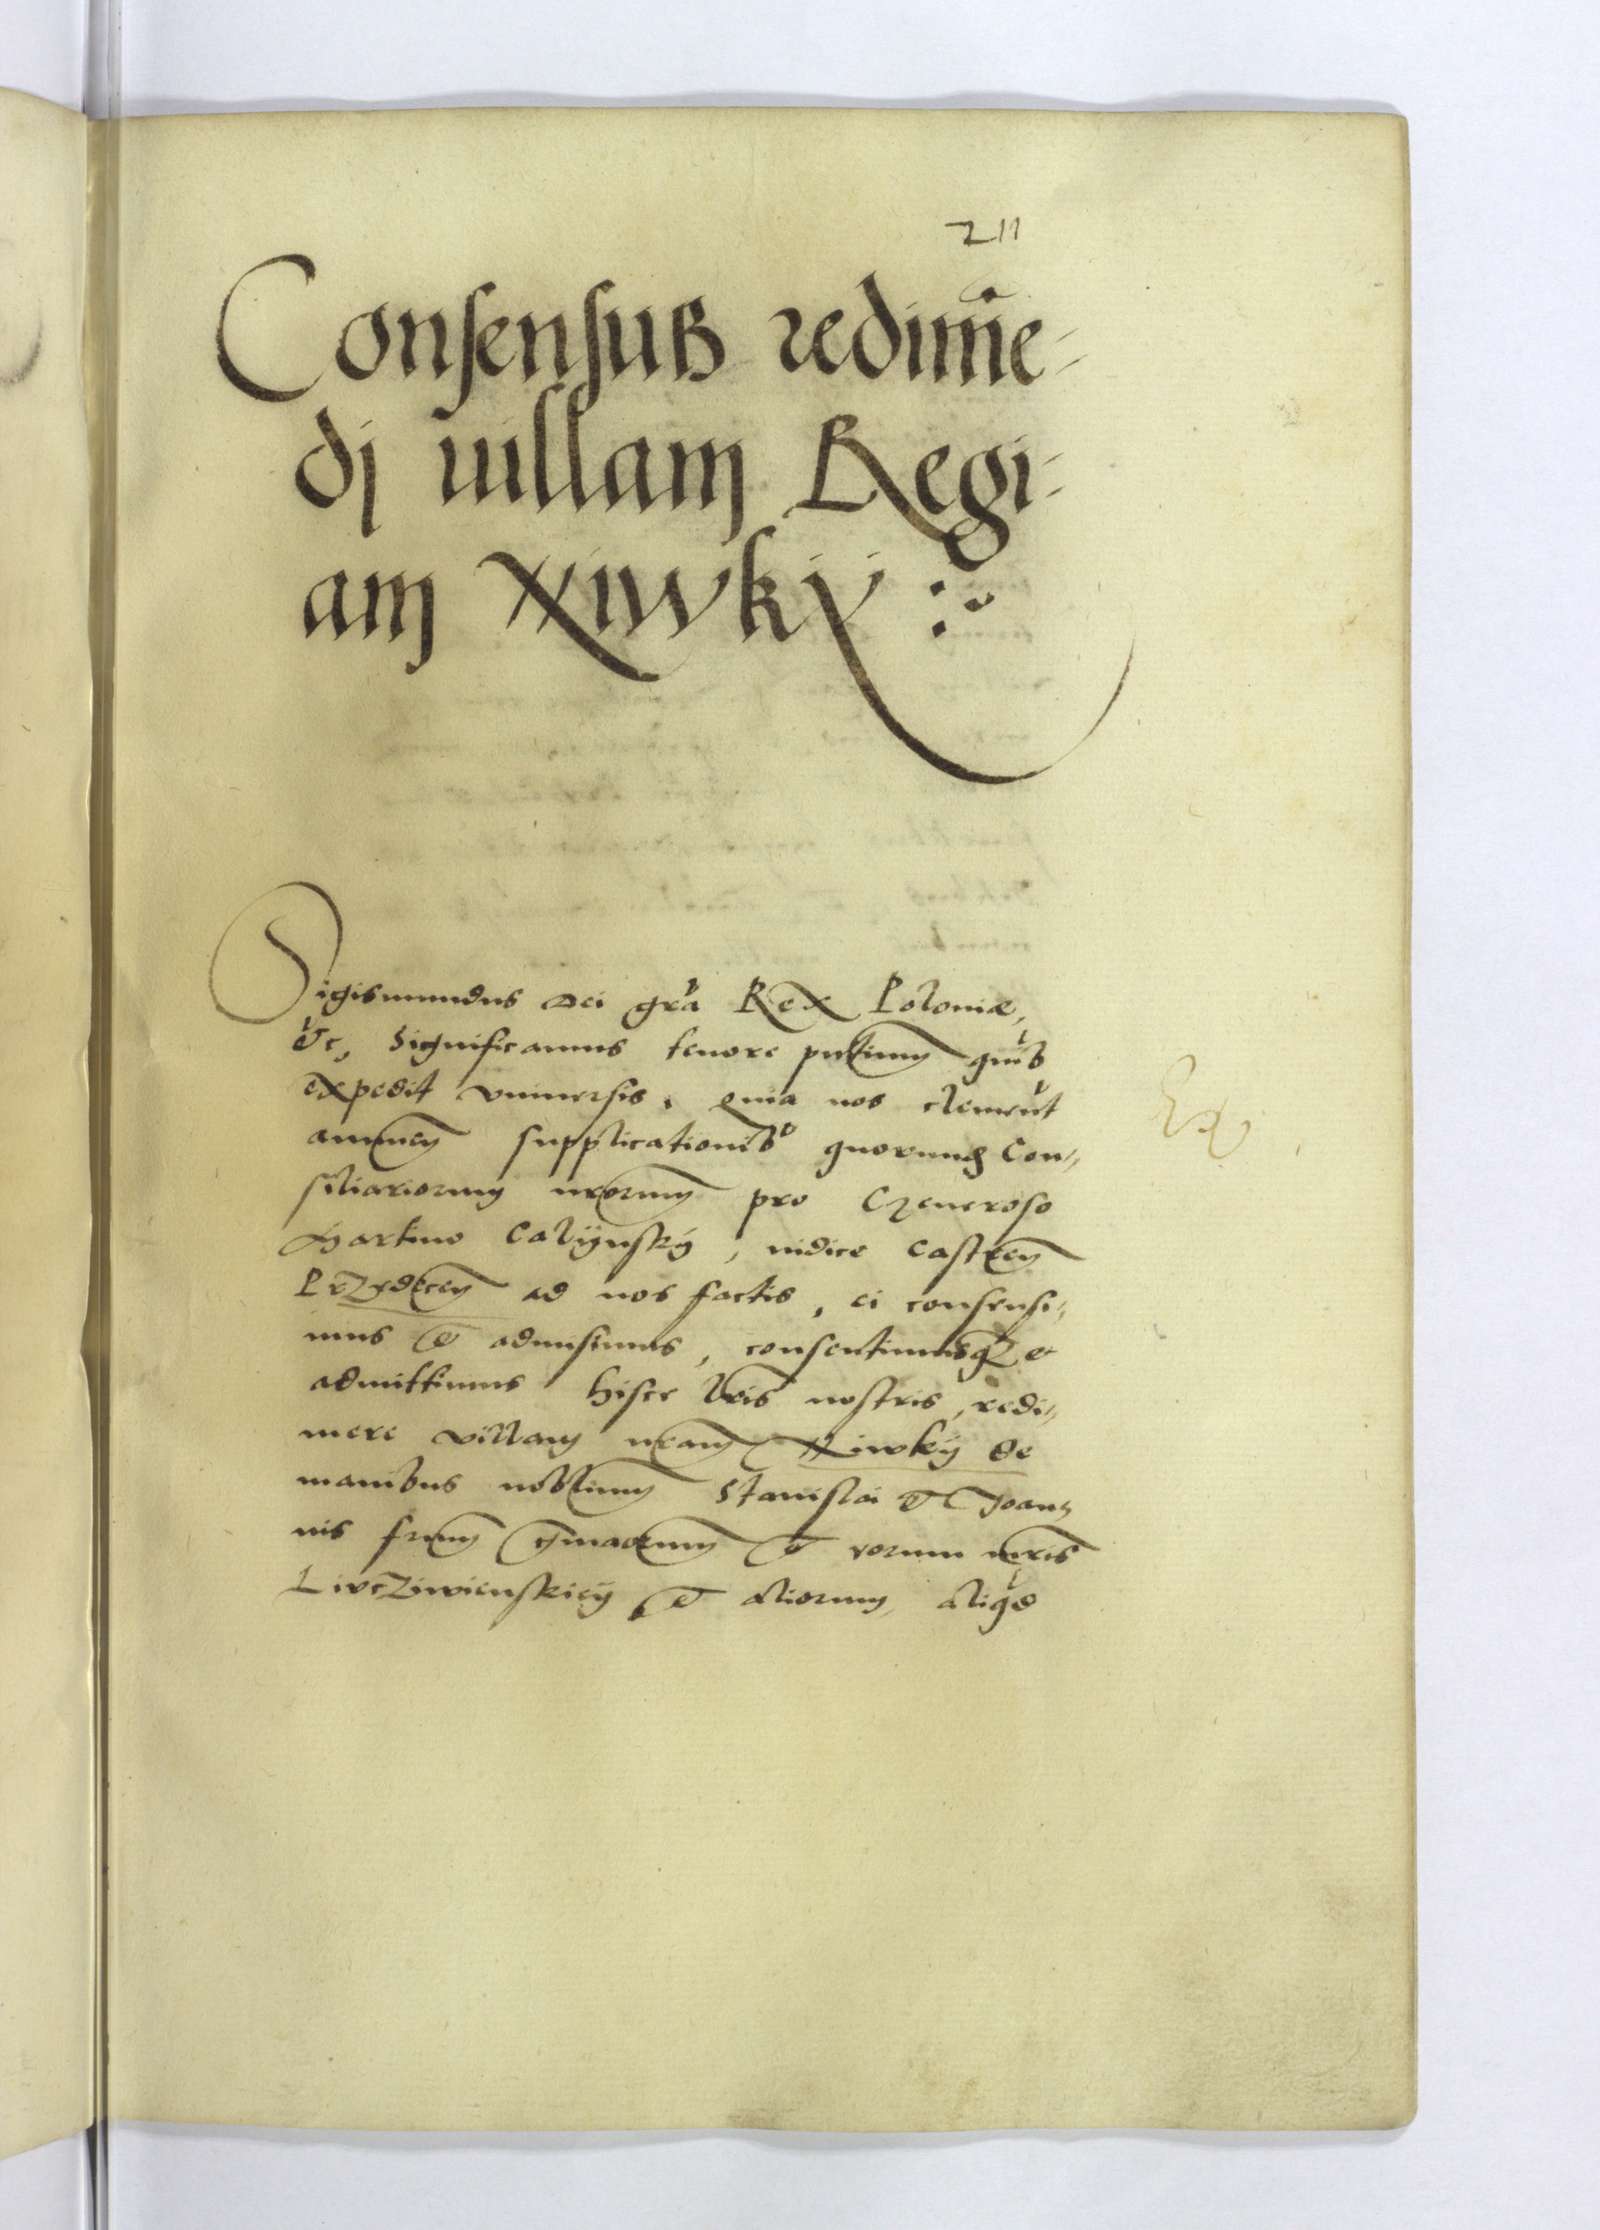 211
Consensus redime-
dj uillam Regi-
am Xiwky :~
Sigismundus Dei gra Rex Poloniæ,
&c, Significamus tenore pntium quib
expedit vniuersis. Quia nos clement
annuen supplicationib quorund Con-
siliariorum nrorum pro Generoso
Martino Calijnskÿ, iudice Castren
Przedecen ad nos factis, ei consensi-
mus et admisimus, consentimusq et
admittimus hisce lris nostris, redi-
mere villam nram Xiwkÿ de
manibus nobilium Stanislai et Joan-
nis frum germanorum et eorum mris
et aliorum, aliqd
Ex